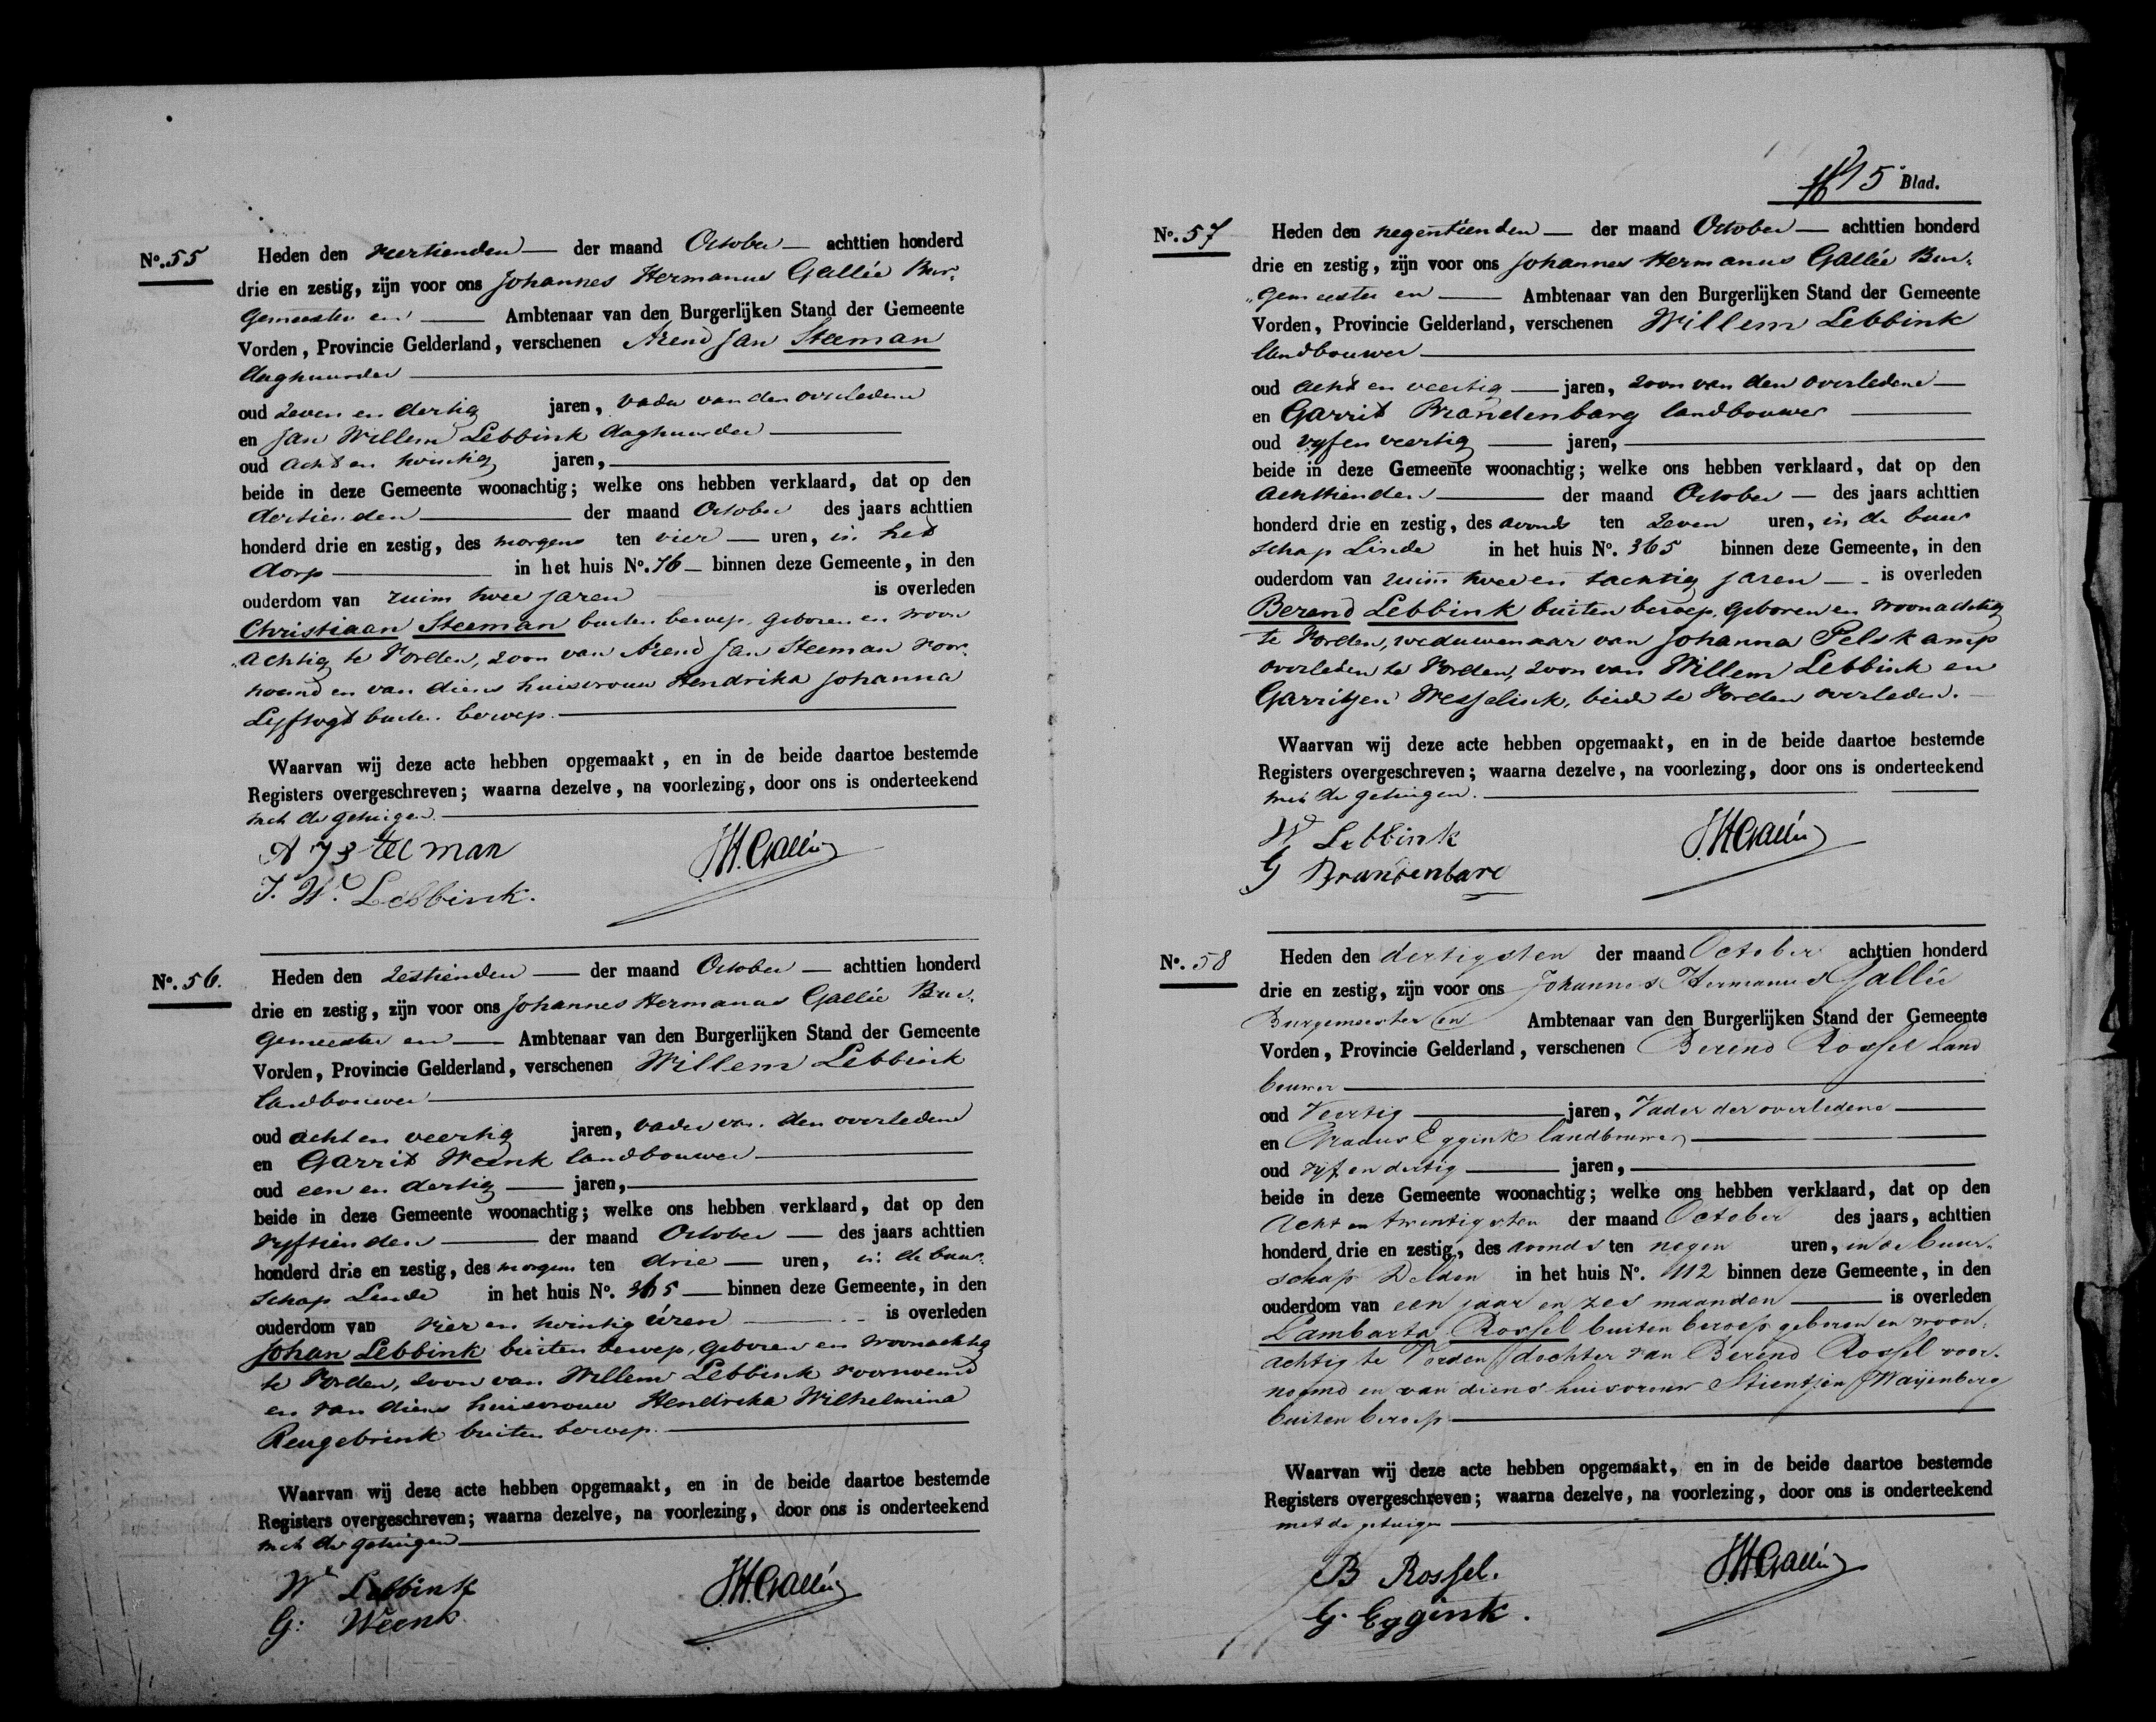 No. 55
Heden den veertienden der maand October achttien honderd
drie en zestig, zijn voor ons Johannes Hermanus Gallée Bur-
gemeester en Ambtenaar van den Burgerlijken Stand der Gemeente
Vorden, Provincie Gelderland, verschenen Arend Jan Steeman
daghuurder
oud zeven en dertig jaren, vader van den overledene
en Jan Willem Lebbink daghuurder
oud acht en twintig jaren,
beide in deze Gemeente woonachtig; welke ons hebben verklaard, dat op den
dertienden der maand October des jaars achttien
honderd drie en zestig, des morgens ten vier uren, in het
dorp in het huis No. 76 binnen deze Gemeente, in den
ouderdom van ruim twee jaren is overleden
Christiaan Steeman buiten beroep, geboren en woon
achtig te Vorden, zoon van Arend Jan Steeman voor-
noemd en van diens huisvrouw Hendrika Johanna
Lyftogt buiten beroep.
Waarvan wij deze acte hebben opgemaakt, en in de beide daartoe bestemde
Registers overgeschreven; waarna dezelve, na voorlezing, door ons is onderteekend
met de getuigen.
A J Steeman
J. W. Lebbink.
JHGallée
No. 56.
Heden den zestienden der maand October achttien honderd
drie en zestig, zijn voor ons Johannes Hermanus Gallée Bur-
gemeester en Ambtenaar van den Burgerlijken Stand der Gemeente
Vorden, Provincie Gelderland, verschenen Willem Lebbink
landbouwer
oud acht en veertig jaren, vader van den overledene
en Garrit Weenk landbouwer
oud een en dertig jaren,
beide in deze Gemeente woonachtig; welke ons hebben verklaard, dat op den
vyftienden der maand October des jaars achttien
honderd drie en zestig, des morgens ten drie uren, in de buur-
schap Linde in het huis No. 365 binnen deze Gemeente, in den
ouderdom van vier en twintig uren is overleden
Johan Lebbink buiten beroep, geboren en woonachtig
te Vorden, zoon van Willem Lebbink voornoemd
en van diens huisvrouw Hendrika Wilhelmina
Reugebrink buiten beroep.
Waarvan wij deze acte hebben opgemaakt, en in de beide daartoe bestemde
Registers overgeschreven; waarna dezelve, na voorlezing, door ons is onderteekend
met de getuigen
W Lebbink
G: Weenk
JHGallée
15 Blad.
No. 57
Heden den negentienden der maand October achttien honderd
drie en zestig, zijn voor ons Johannes Hermanus Gallée Bur-
gemeester en Ambtenaar van den Burgerlijken Stand der Gemeente
Vorden, Provincie Gelderland, verschenen Willem Lebbink
landbouwer
oud acht en veertig jaren, zoon van den overledene
en Garrit Brandenbarg landbouwer
oud vyf en veertig jaren,
beide in deze Gemeente woonachtig; welke ons hebben verklaard, dat op den
achttienden der maand October des jaars achttien
honderd drie en zestig, des avonds ten zeven uren, in de buur
schap Linde in het huis No. 365 binnen deze Gemeente, in den
ouderdom van ruim twee en tachtig jaren is overleden
Berend Lebbink buiten beroep, geboren en woonachtig
te Vorden, weduwenaar van Johanna Pelskamp
overleden te Vorden, zoon van Willem Lebbink en
Garritjen Wesselink, beide te Vorden overleden.
Waarvan wij deze acte hebben opgemaakt, en in de beide daartoe bestemde
Registers overgeschreven; waarna dezelve, na voorlezing, door ons is onderteekend
met de getuigen.
W Lebbink
G Brandenbarg
JHGallée
No. 58
Heden den dertigsten der maand October achttien honderd
drie en zestig, zijn voor ons Johannes Hermanus Gallée
Burgemeester en Ambtenaar van den Burgerlijken Stand der Gemeente
Vorden, Provincie Gelderland, verschenen Berend Rossel land
bouwer
oud Veertig jaren, Vader der overledene
en Gradus Eggink landbouwer
oud vyf en dertig jaren,
beide in deze Gemeente woonachtig; welke ons hebben verklaard, dat op den
acht en twintigsten der maand October des jaars, achttien
honderd drie en zestig, des avonds ten negen uren, in de buur-
schap Delden in het huis No. 112 binnen deze Gemeente, in den
ouderdom van een jaar en zes maanden is overleden
Lambarta Rossel buiten beroep geboren en woon-
achtig te Vorden, dochter van Berend Rossel voor-
noemd en van diens huisvrouw Stientjen Waijenberg
buiten beroep
Waarvan wij deze acte hebben opgemaakt, en in de beide daartoe bestemde
Registers overgeschreven; waarna dezelve, na voorlezing, door ons is onderteekend
met de getuigen
B Rossel.
G. Eggink.
JHGallée